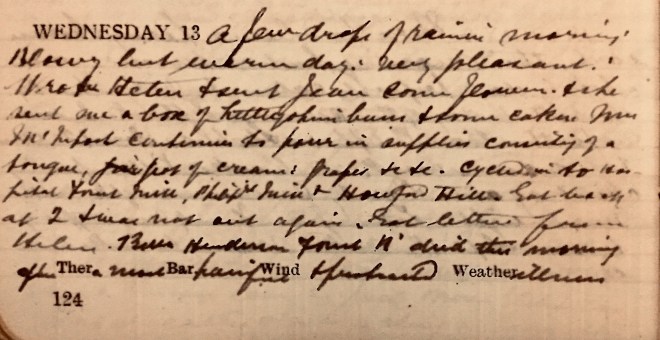 WEDNESDAY 13 A few drops of rain in morning.
Blowy but warm day: very pleasant.
Wrote Helen & sent Jean some flowers. & she
sent me a box of buns & some cakes. Mrs
continues to pour in supplies consisting of a
tongue, pot of cream: grapes &c &c. Cycled in to Hos-
pital Hill. Got back
at 2 & was not out again. Got letter from
Helen. Henderson died this morning
after a most painful & protracted illness
Ther. Bar. Wind Weather
124